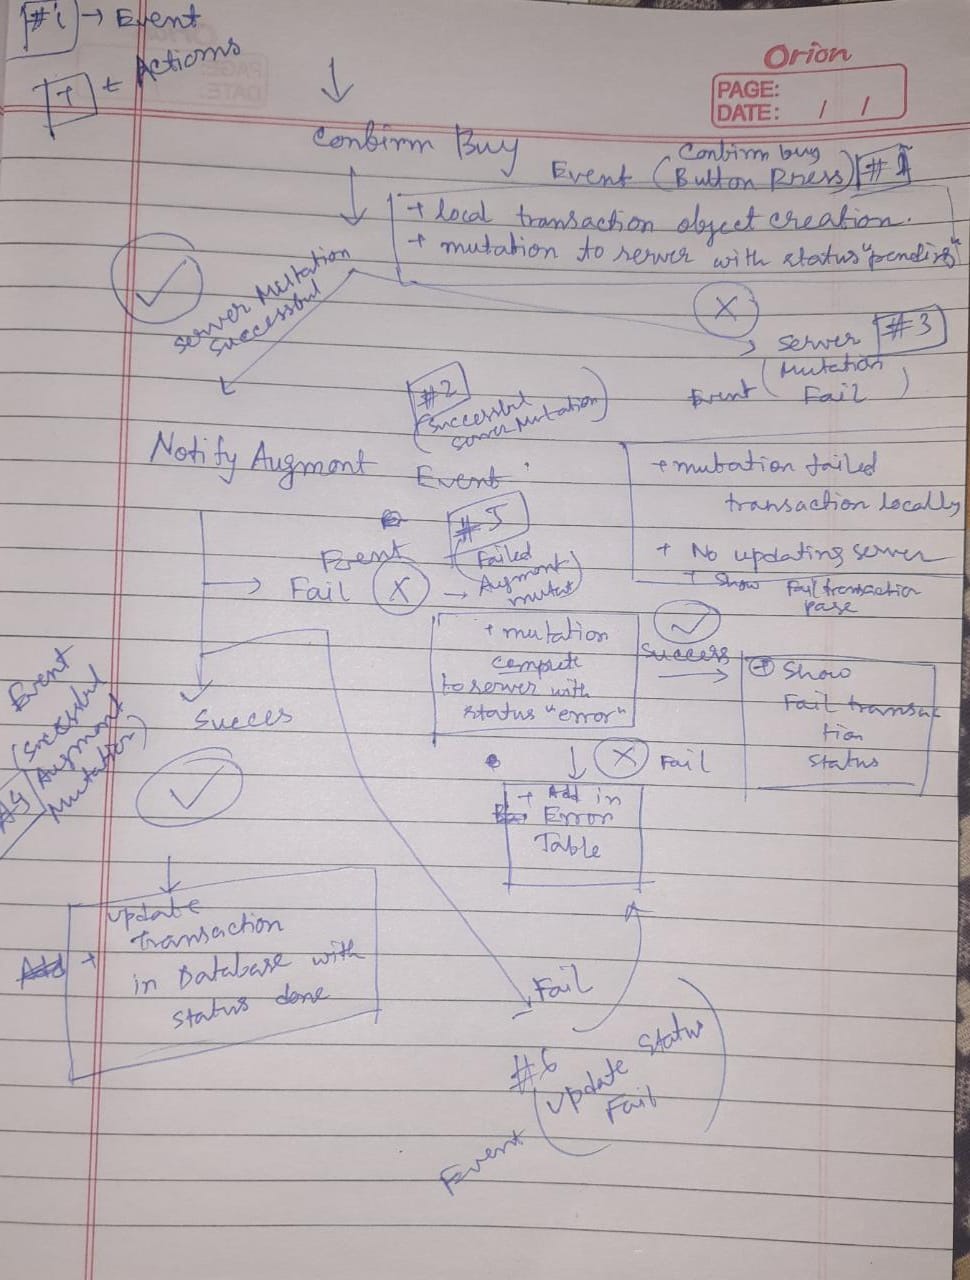 #i → Event
+ ← Actions
Orion
PAGE:
DATE: / /
Confirm Buy
Event (Confirm buy
Button Press) #1
+ local transaction object creation.
+ mutation to server with status "pending"
Server Mutation
Successful
Server #3
Event (Mutation
Fail)
#2
(Successful
Server Mutation)
Notify Augmont Event
+ mutation failed
transaction locally
+ No updating server
+ Show Fail transaction
page
#5
Event (Failed
Fail X → Augmont
mutat)
+ mutation
complete
to server with
status "error"
Success
+ Show
Fail transac
tion
status
Succes
Event
(Sucessful
Augmont
Mutation)
#4
X Fail
+ Add in
Error
Table
update
Transaction
Add + in Database with
status done
Fail
#6
(update status
Fail)
Event